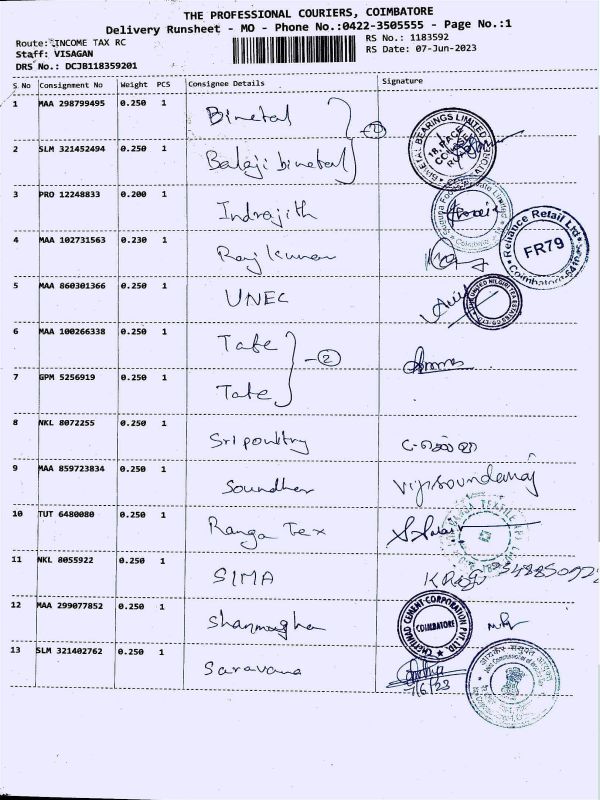 THE PROFESSIONAL COURIERS, COIMBATORE
Delivery Runsheet - MO - Phone No.:0422-3505555 - Page No.:1
Route: INCOME TAX RC
RS No.: 1183592
Staff: VISAGAN
RS Date: 07-Jun-2023
DRS No.: DCJB118359201
S No Consignment No Weight PCS Consignee Details Signature
1 MAA 298799495 0.250 1 Bimetal
BIMETAL BEARINGS LIMITED
18, RACE COURSE
2 SLM 321452494 0.250 1 Balaji bimetal
1
3 PRO 12248833 0.200 1 Indrajith
4 MAA 102731563 0.230 1 Rajkumar
Reliance Retail Ltd
FR79
Coimbatore-6410
5 MAA 860301366 0.250 1 UNEC
UNITED NILGIRI TEA ESTATES CO. LTD
6 MAA 100266338 0.250 1 Tafe
2
7 GPM 5256919 0.250 1 Tafe
8 NKL 8072255 0.250 1 Sri poultry
9 MAA 859723834 0.250 1 Soundher Vijisoundaraj
10 TUT 6480080 0.250 1 Ranga Tex
11 NKL 8055922 0.250 1 SIMA
12 MAA 299077852 0.250 1 Shanmugha
CHETTINAD CEMENT CORPORATION PVT. LTD.
COIMBATORE
13 SLM 321402762 0.250 1 Saravana
7/6/23
आयकर संयुक्त आयुक्त